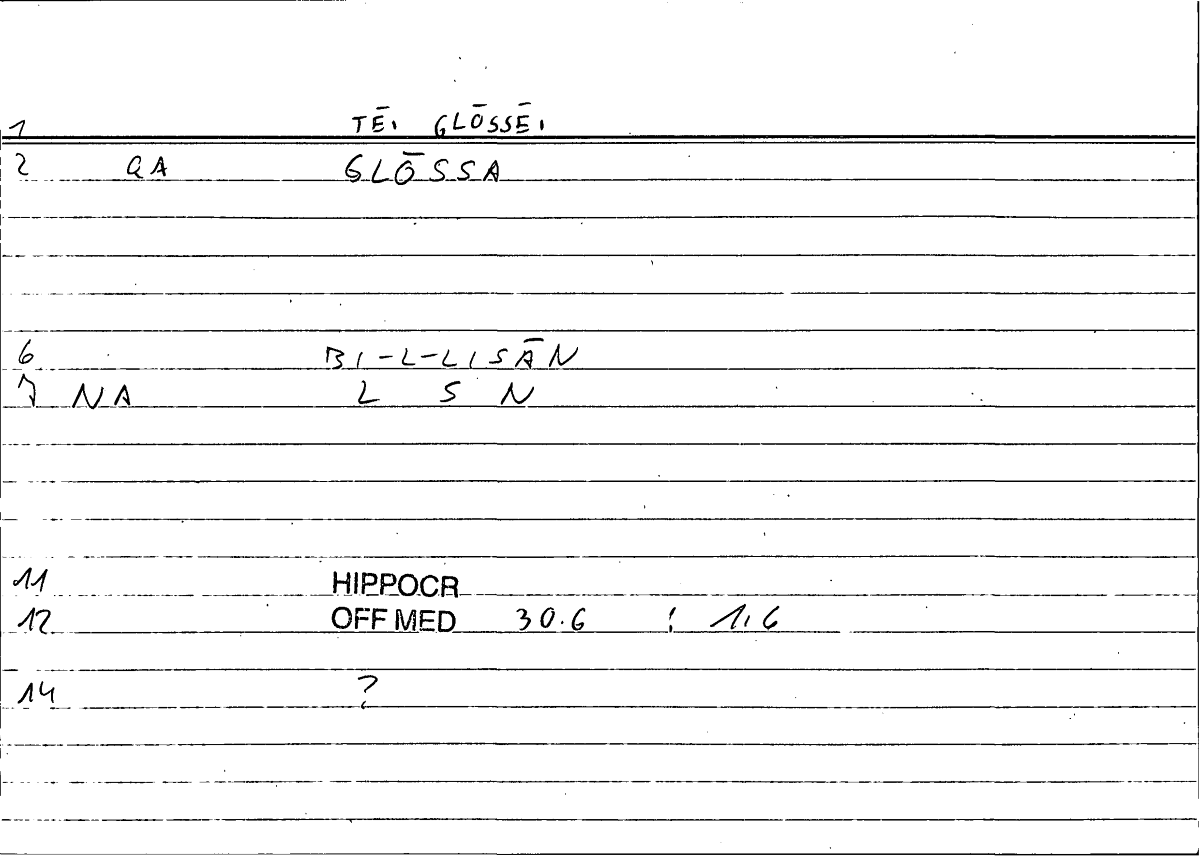 1 TĒI GLŌSSĒI
2 QA GLŌSSA
6 BI-L-LISĀN
7 NA L S N
11 HIPPOCR
12 OFF MED 30.6 : 1,6
14 ?